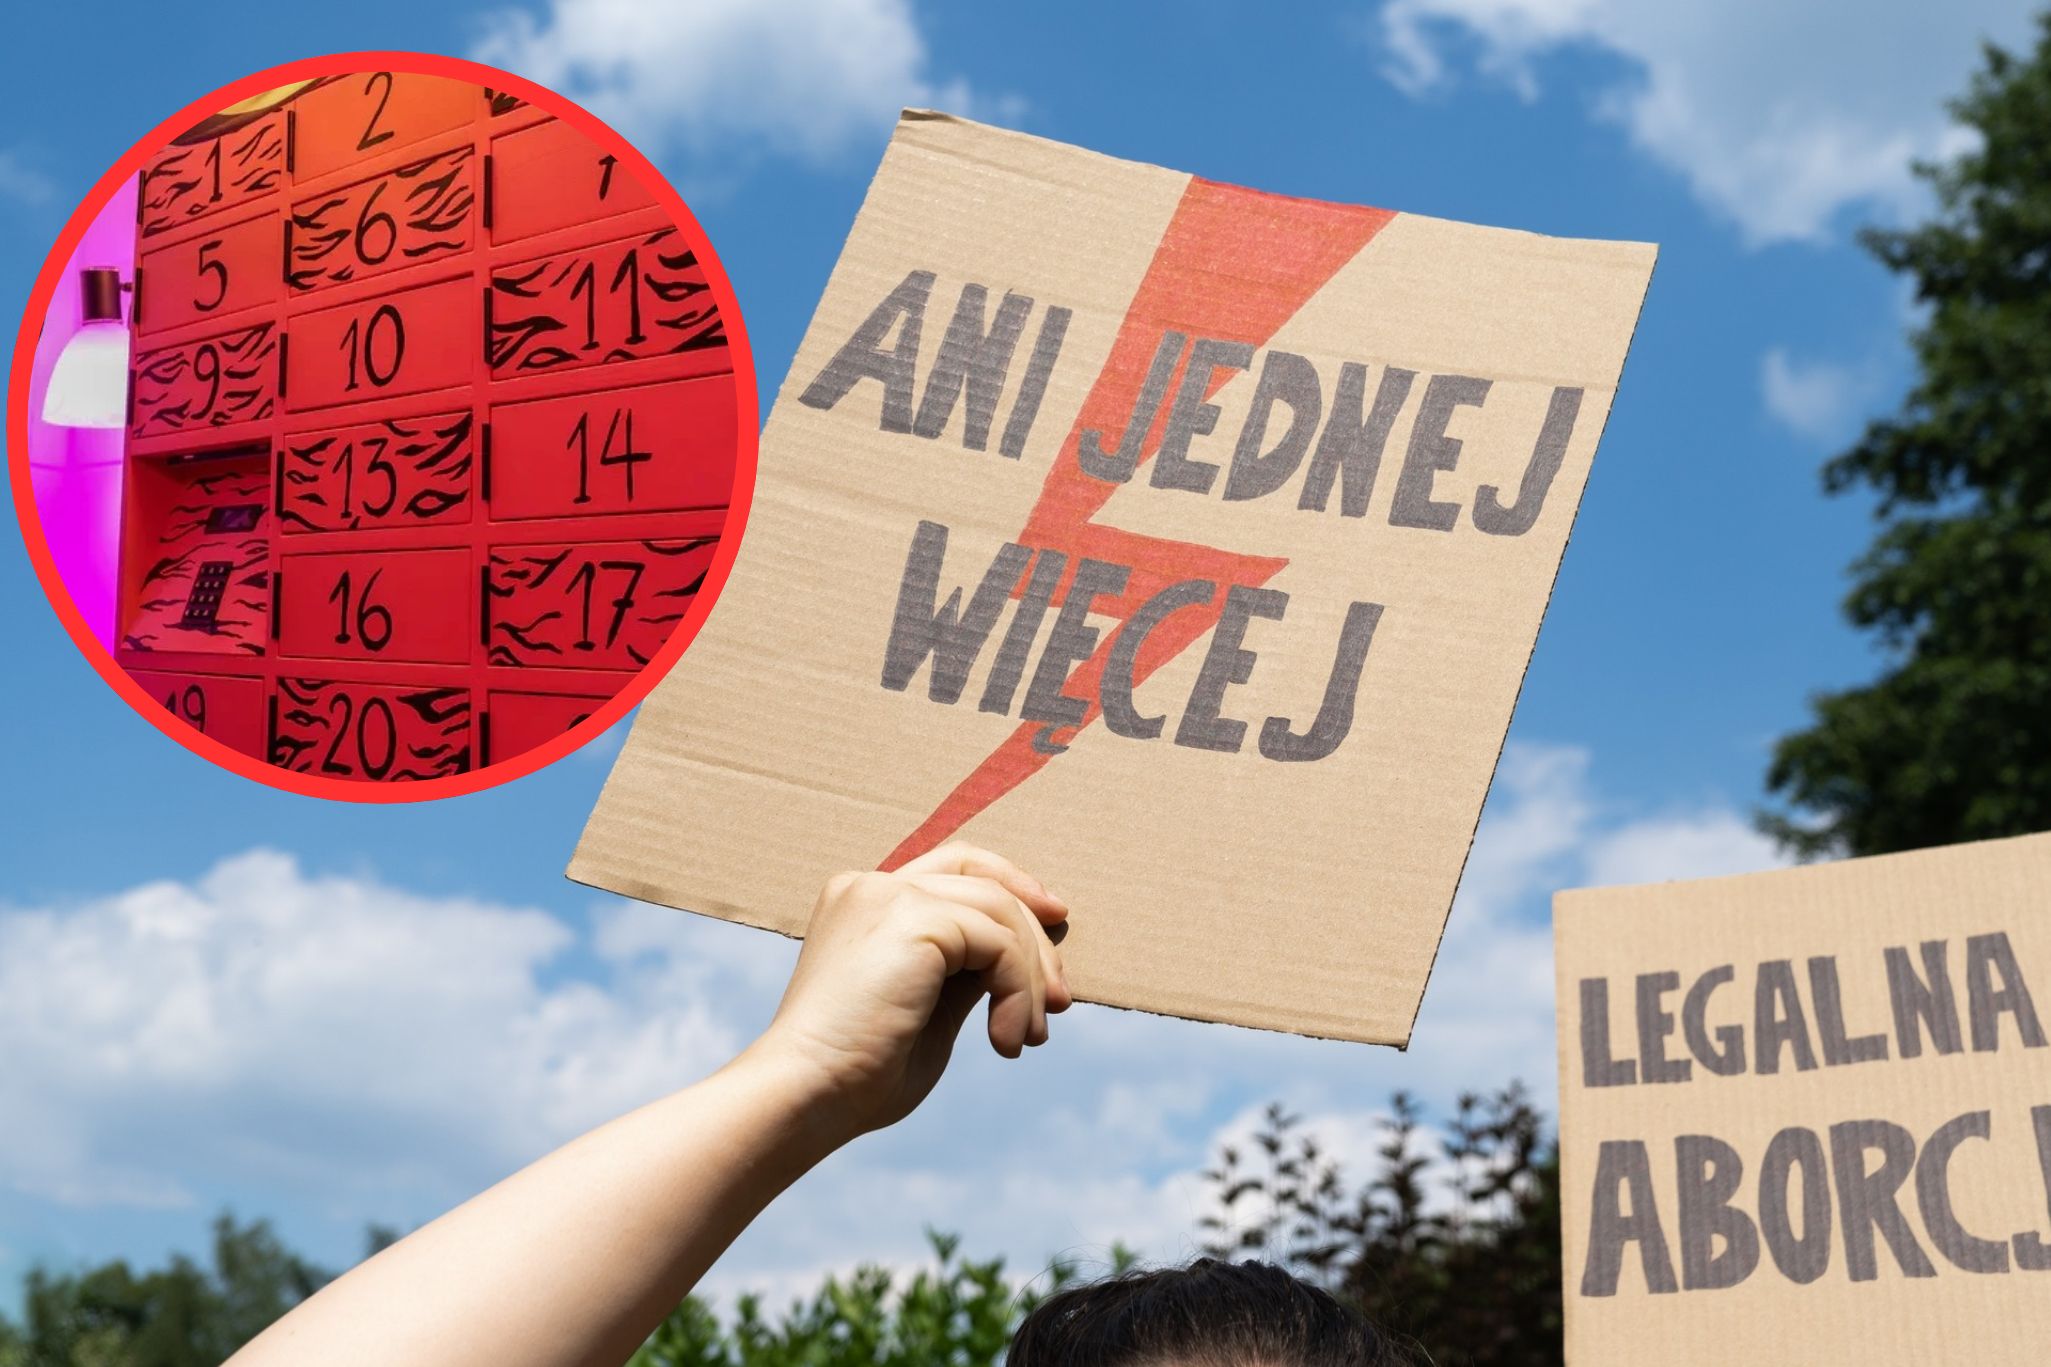 1
2
5
6
9
10
11
13
14
16
17
19
20
ANI JEDNEJ
WIĘCEJ
LEGALNA